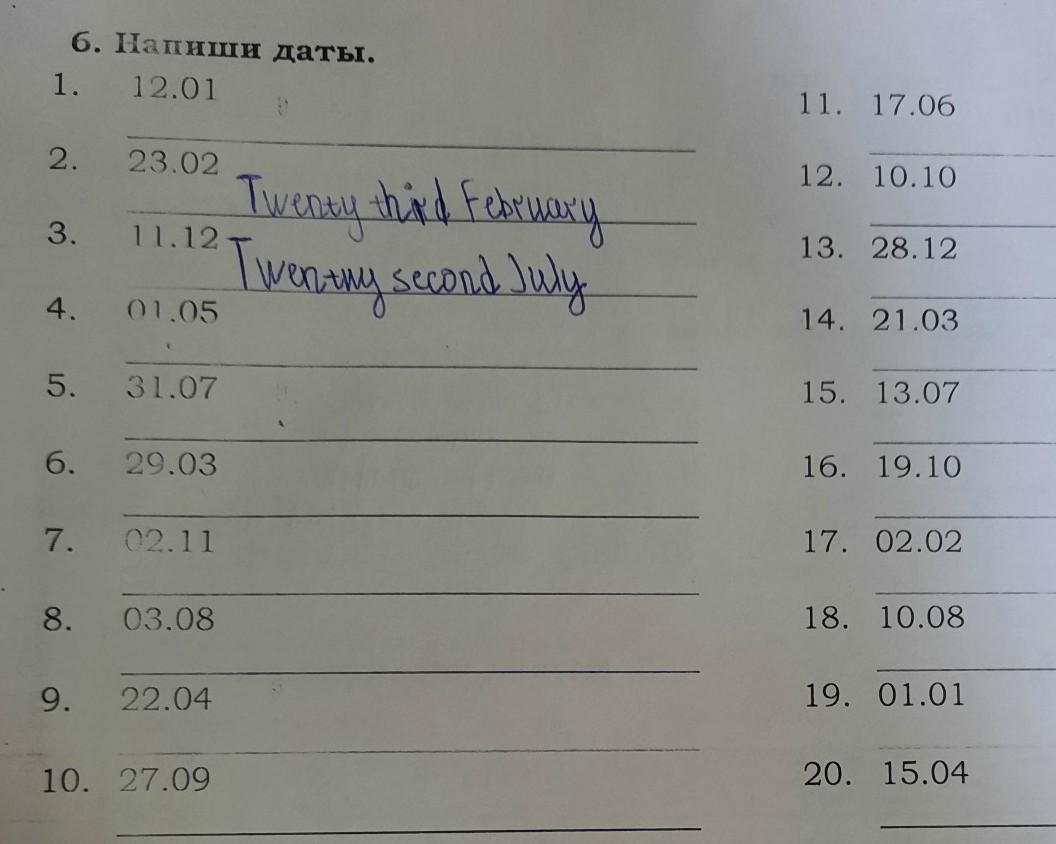 6. Напиши даты.
1. 12.01
2. 23.02
Twenty third February
3. 11.12
Twentny second July
4. 01.05
5. 31.07
6. 29.03
7. 02.11
8. 03.08
9. 22.04
10. 27.09
11. 17.06
12. 10.10
13. 28.12
14. 21.03
15. 13.07
16. 19.10
17. 02.02
18. 10.08
19. 01.01
20. 15.04